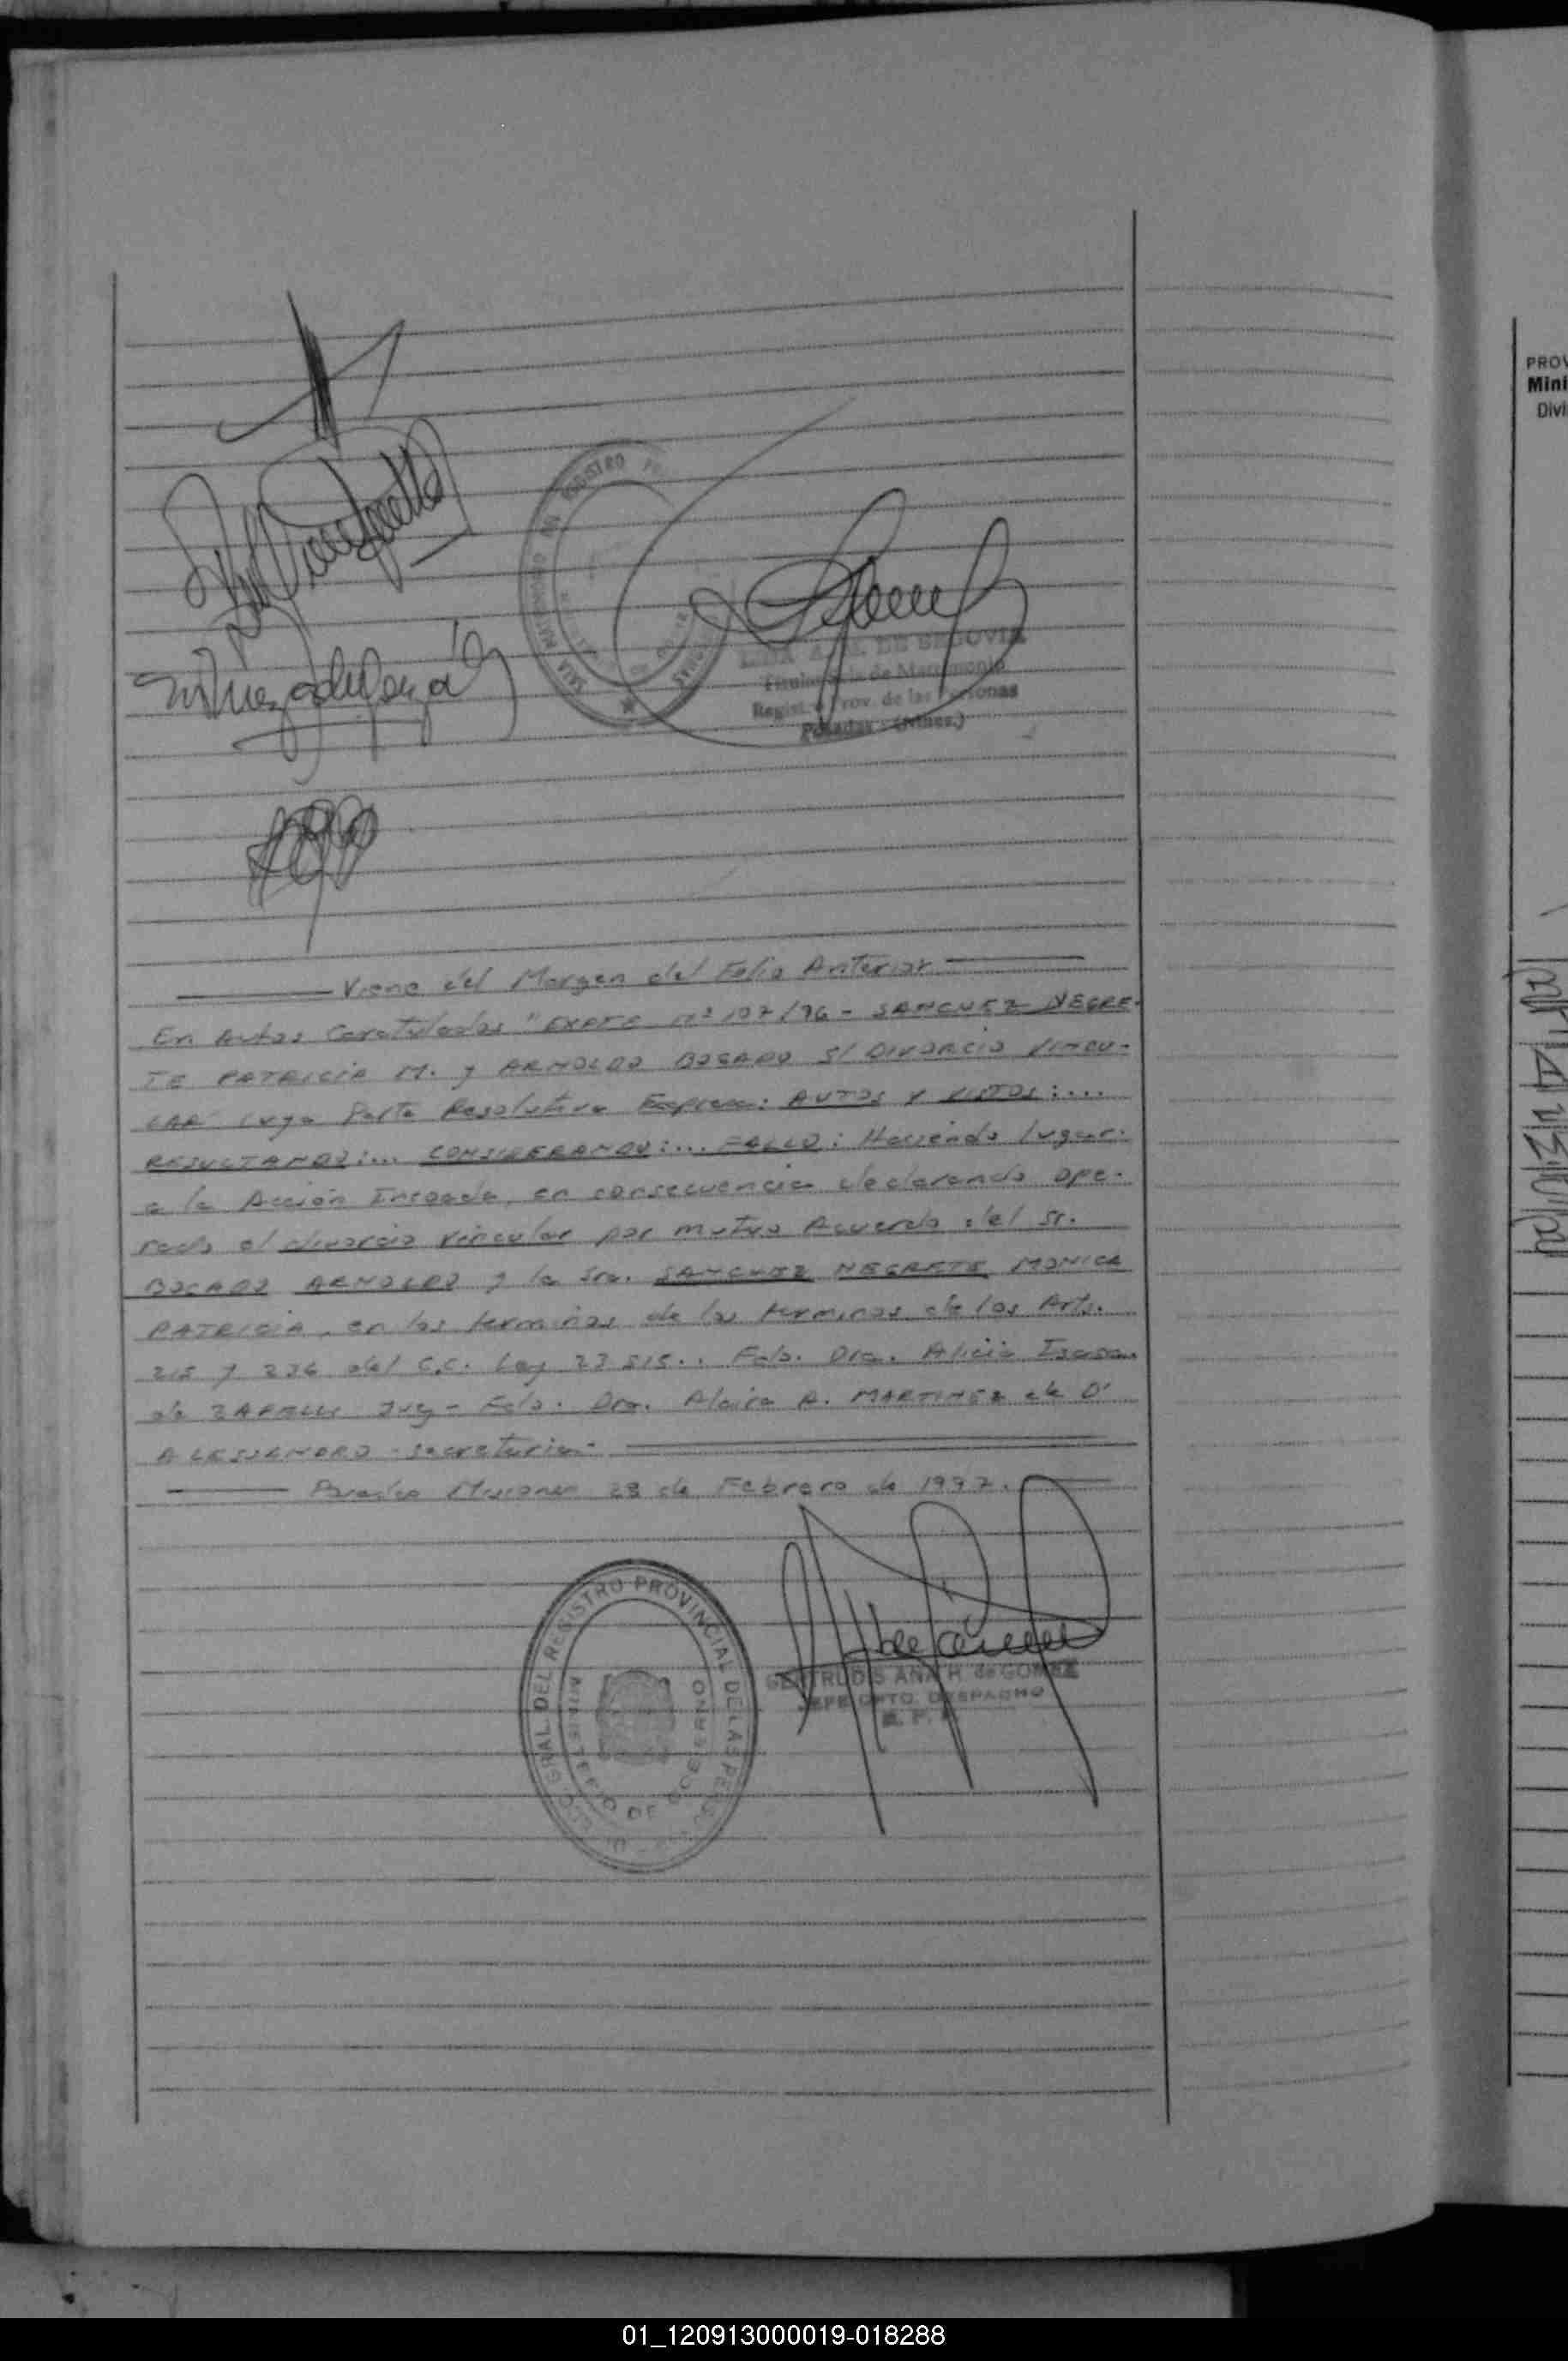 REGISTRO
DE SEGOVIA
Titular de Matrimonio
Regist. Prov. de las Personas
Posadas - (Mnes.)
Viene del Margen del Folio Anterior
En Autos Caratulados "EXPTE Nº 107/96 - SANCHEZ NEGRE-
TE PATRICIA M. y ARNOLDO BOGADO S/ DIVORCIO VINCU-
LAR" Cuya Parte Resolutiva Expresa: AUTOS Y VISTOS:...
RESULTANDO:... CONSIDERANDO:... FALLO: Haciendo lugar
a la Acción Incoada, en consecuencia declarando ope-
rado el divorcio vincular por mutuo Acuerdo del Sr.
BOGADO ARNOLDO y la Sra. SANCHEZ NEGRETE MONICA
PATRICIA, en los terminos de los terminos de los Arts.
215 y 236 del C.C. Ley 23.515.. Fdo. Dra. Alicia
de Juez - Fdo. Dra. Alcira A. MARTINEZ de D'
ALESSANDRO - Secretaria -
28 de Febrero de 1997.
GRAL. DEL REGISTRO PROVINCIAL DE LAS PERSO
MINISTERIO DE GOBIERNO
GERTRUDIS ANA H. de GOMEZ
JEFE DPTO. DESPACHO
R. P.
PROV
Mini
Divi
01_120913000019-018288